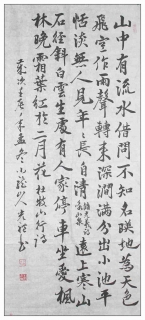 山中有流水借問不知名映地為天色
飛空作雨聲轉來深澗滿分出小池平
恬淡無人見年年長自清遠上寒山
石徑斜白雲生處有人家停車坐愛楓
林晚霜葉紅於二月花杜牧山行詩
歲次孟冬